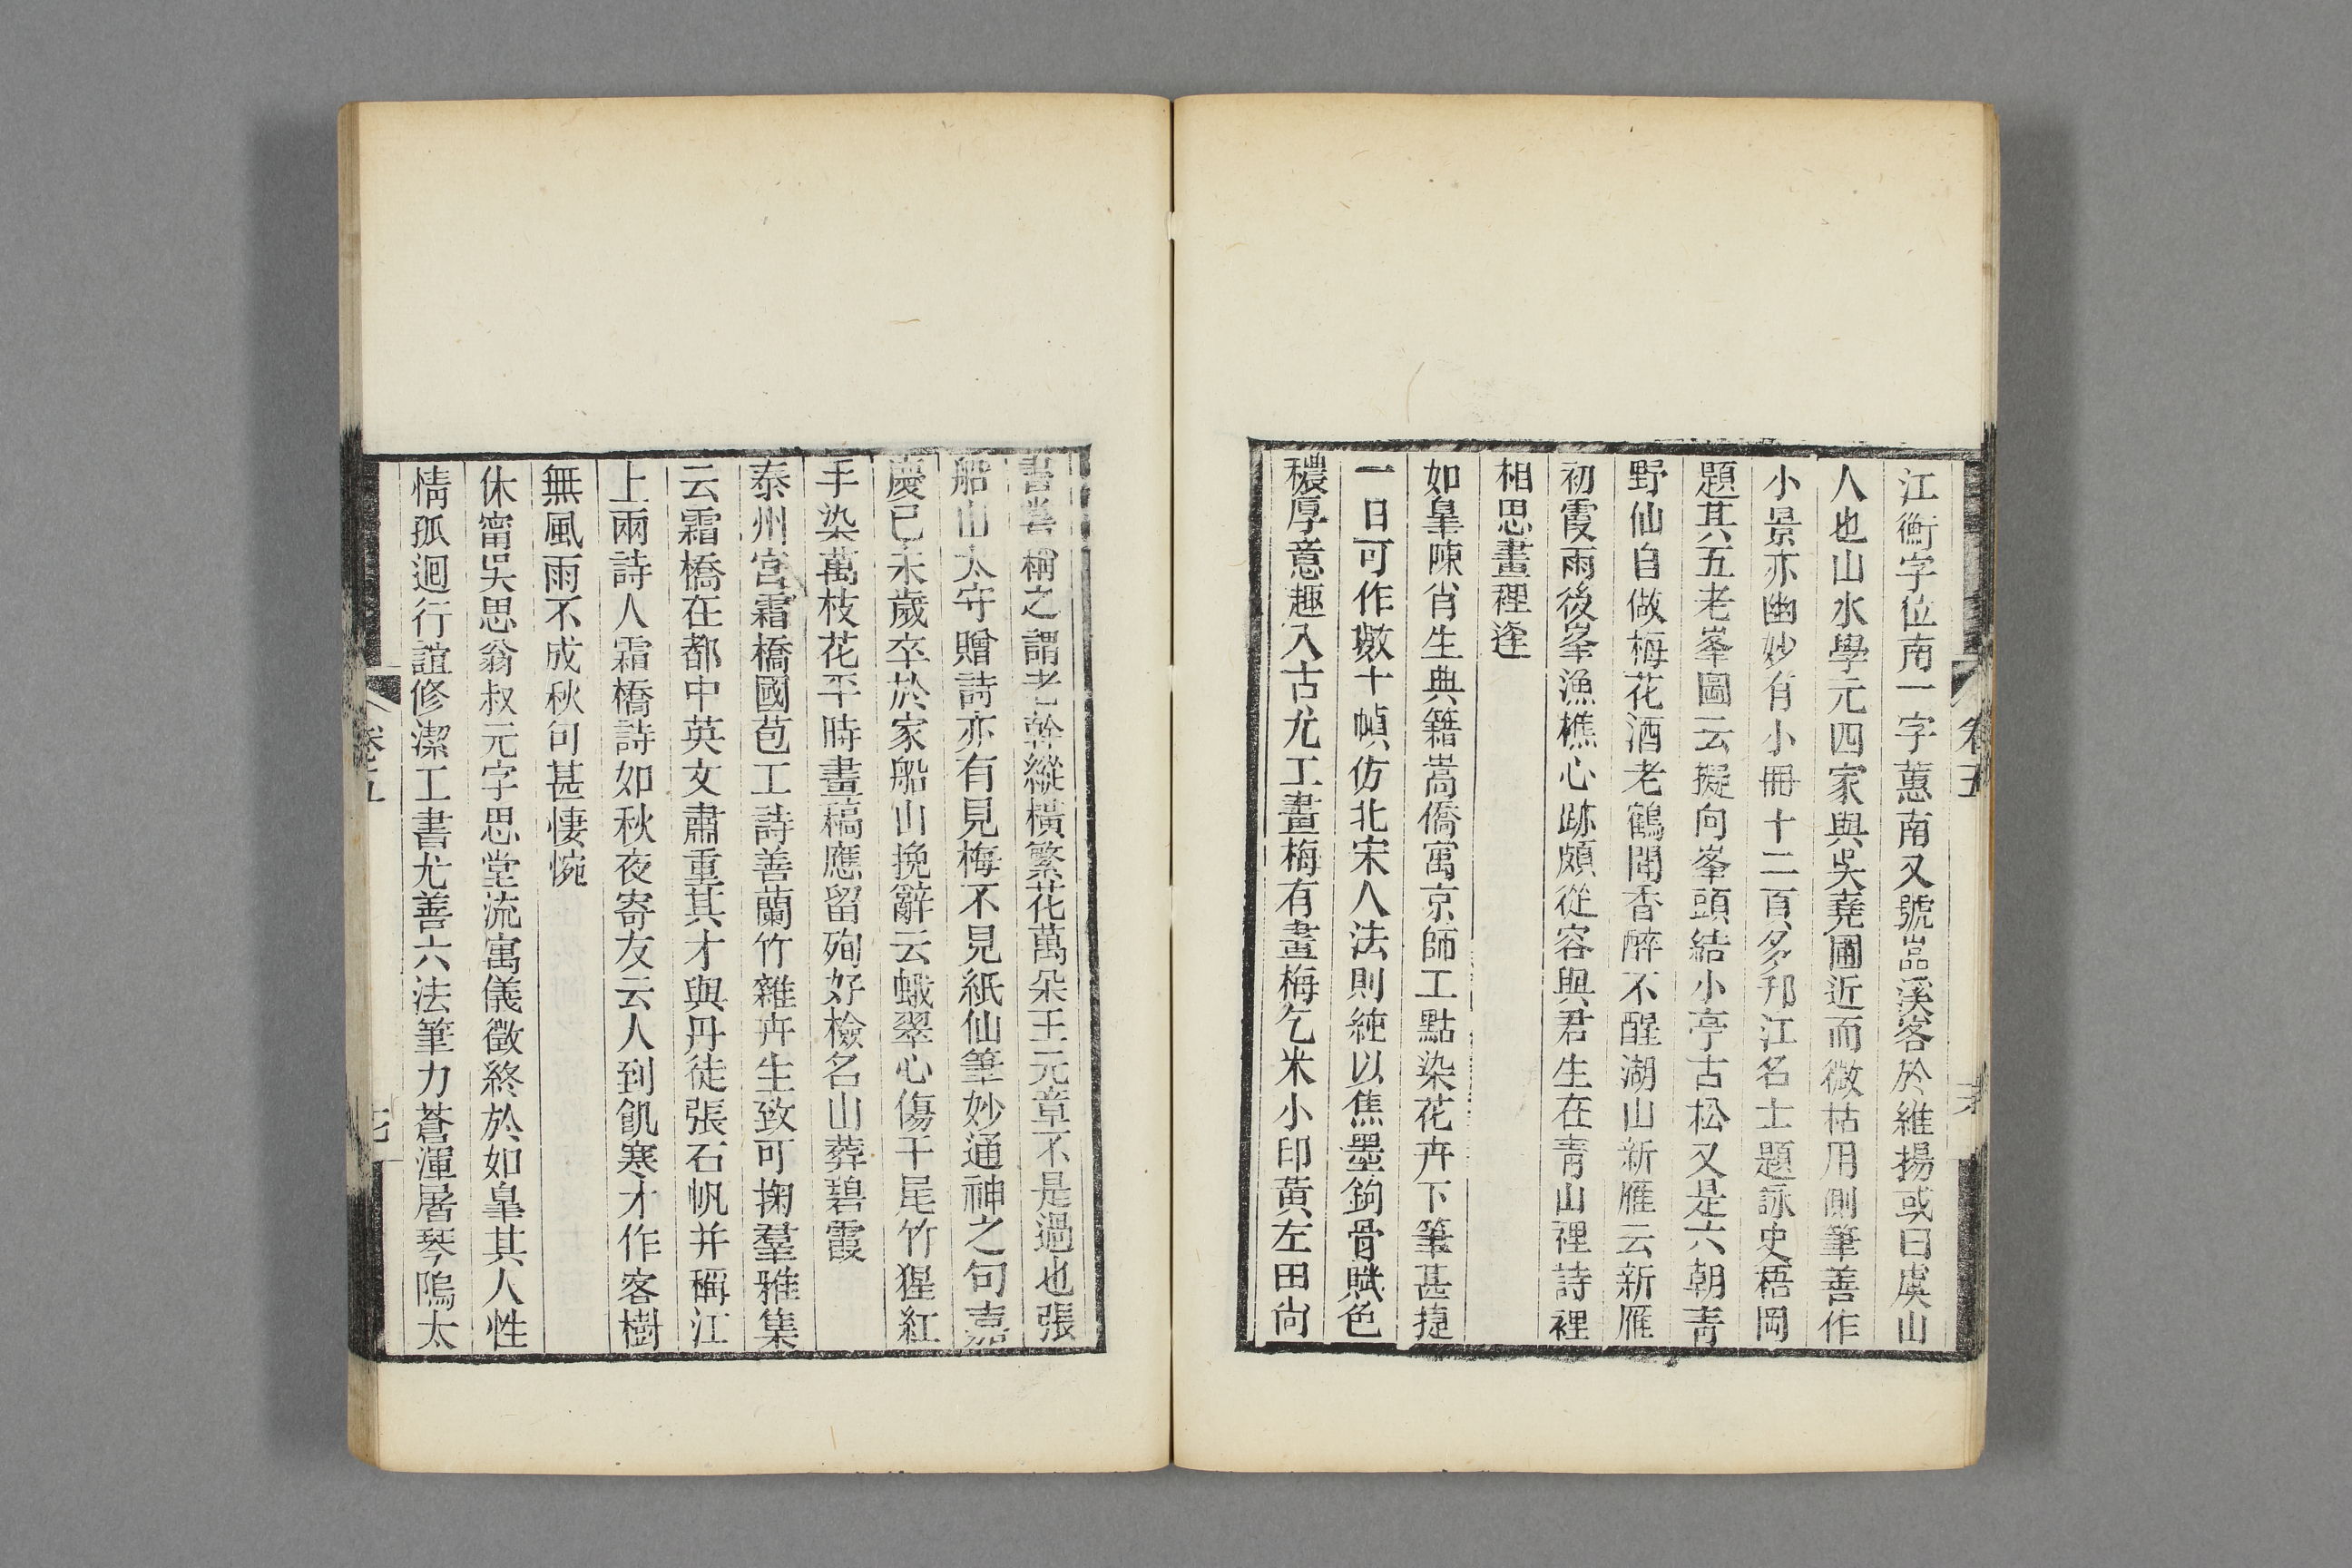 江衡字位南一字蕙南又號嵓溪客於維揚或曰虞山
人也山水學元四家與吳蕘圃近而微枯用側筆善作
小景亦幽妙有小冊十二頁多邗江名士題詠史梧岡
題其五老峯圖云擬向峯頭結小亭古松又是六朝青
野仙自做梅花酒老鶴聞香醉不醒湖山新雁云新雁
初霞雨後峯漁樵心跡頗從容與君生在青山裡詩裡
相思畫裡逢
如臯陳肖生典籍嵩僑寓京師工點染花卉下筆甚捷
一日可作數十幀仿北宋人法則純以焦墨鉤骨賦色
穠厚意趣入古尤工畫梅有畫梅乞米小印黃左田尚
書嘗稱之謂老幹縱橫繁花萬朵王元章不是過也張
船山太守贈詩亦有見梅不見紙仙筆妙通神之句嘉
慶己未歲卒於家船山挽辭云蛾翠心傷千尾竹猩紅
手染萬枝花平時畫稿應留殉好檢名山葬碧霞
泰州宮霜橋國苞工詩善蘭竹雜卉生致可掬羣雅集
云霜橋在都中英文肅重其才與丹徒張石帆并稱江
上兩詩人霜橋詩如秋夜寄友云人到飢寒才作客樹
無風雨不成秋句甚悽惋
休甯吳思翁叔元字思堂流寓儀徵終於如臯其人性
情孤迥行誼修潔工書尤善六法筆力蒼渾屠琴隖太
卷五
卷五